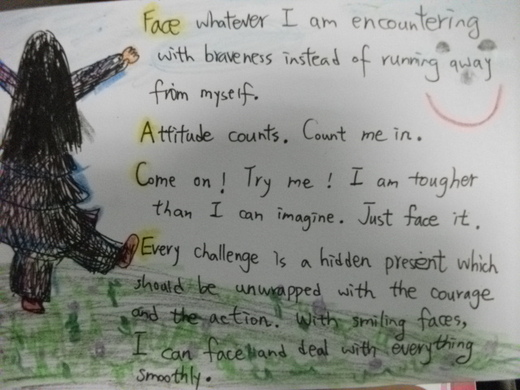 Face whatever I am encountering
with braveness instead of running away
from myself.
Attitude counts. Count me in.
Come on! Try me! I am tougher
than I can imagine. Just face it.
Every challenge is a hidden present which
should be unwrapped with the courage
and the action. With smiling faces,
I can face and deal with everything
smoothly.